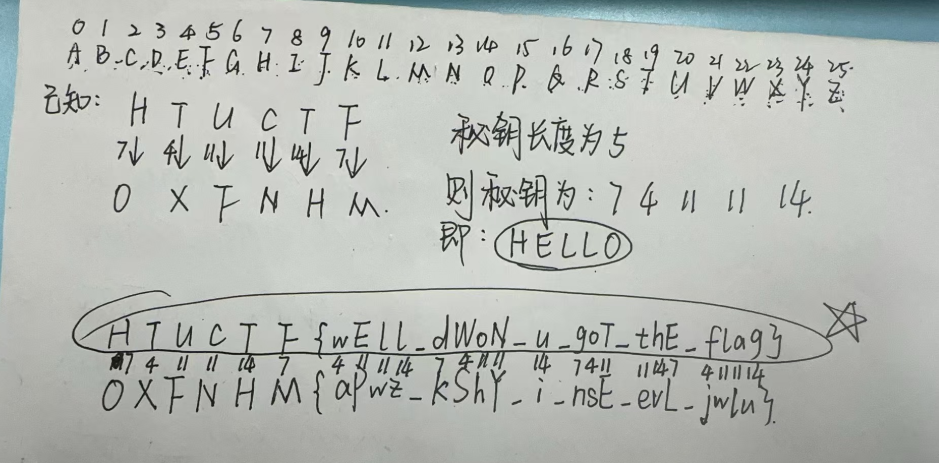 0 1 2 3 4 5 6 7 8 9 10 11 12 13 14 15 16 17 18 19 20 21 22 23 24 25
A B C D E F G H I J K L M N O P Q R S T U V W X Y Z
已知: H T U C T F
7↓ 4↓ 11↓ 11↓ 14↓ 7↓
O X F N H M.
秘钥长度为5
则秘钥为: 7 4 11 11 14.
即: HELLO
HTUCTF{wEll_dWoN_u_goT_thE_flag}
7 4 11 11 14 7 4 11 11 14 7 4 11 11 14 7 4 11 11 14 7 4 11 11 14
OXFNHM{aPwz_kShY_i_nsE_evL_jwlu}